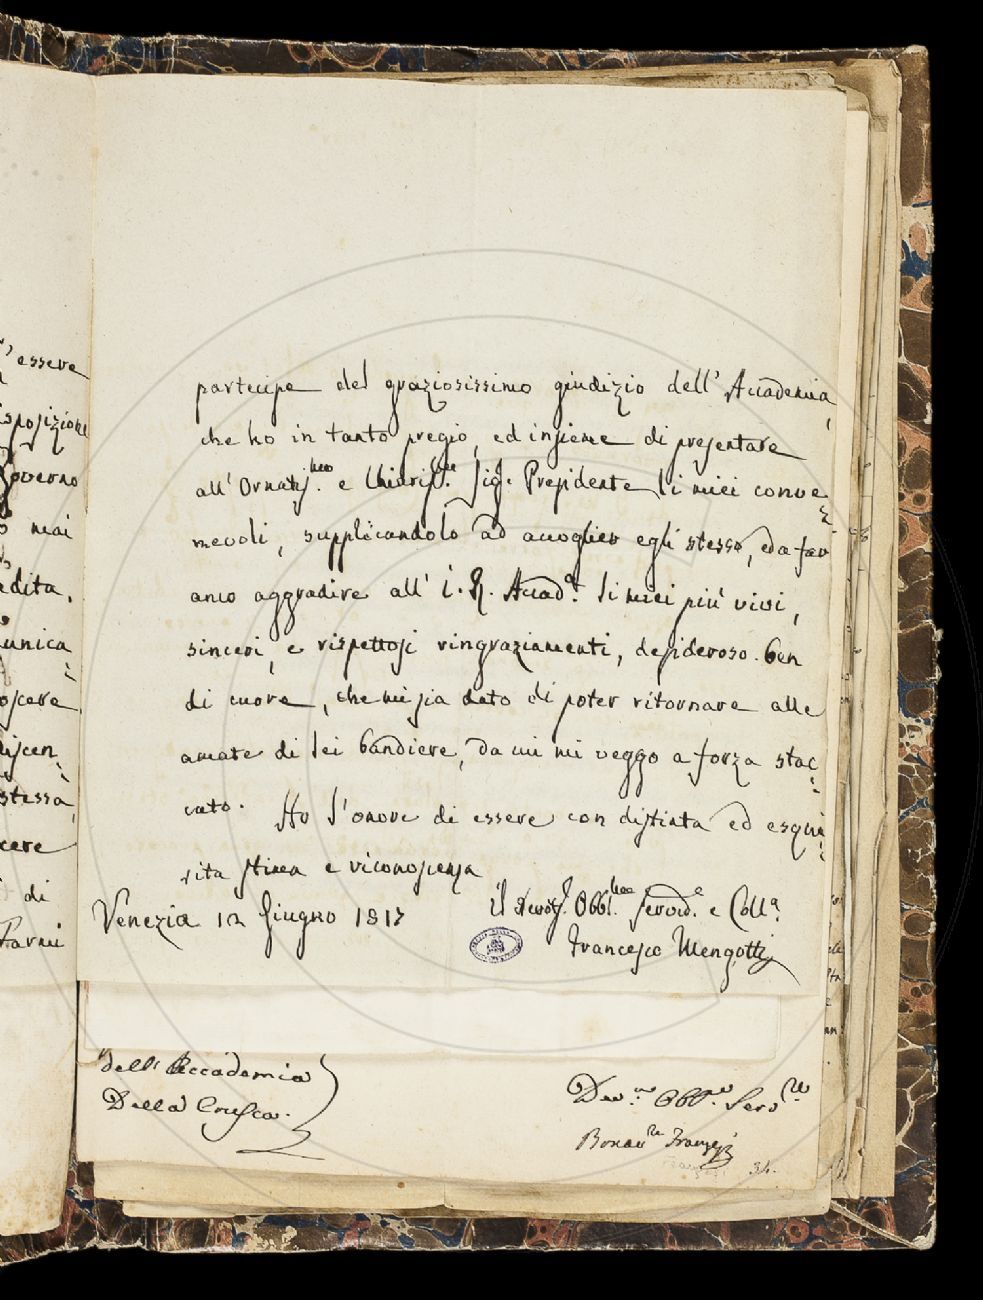 essere
sposizione
Governo
mai
adita.
unica
oscere
stessa
cere
di
Farmi
partecipe del graziosissimo giudizio dell' Accademia,
che ho in tanto pregio, ed insieme di presentare
all' Ornatis.mo e Chiaris.mo Sig.r Presidente li miei conve=
nevoli, supplicandolo ad accoglier egli stesso, ed a far
anco aggradire all' I. R. Accad.a li miei più vivi,
sinceri, e rispettosi ringraziamenti, desideroso ben
di cuore, che mi sia dato di poter ritornare alle
amate di lei bandiere, da cui mi veggo a forza stac=
cato. Ho l'onore di essere con distinta ed esqui=
sita stima e riconoscenza
Il Devotis. Obbl.mo Servid.e e Coll.a
Venezia 12 Giugno 1817
Francesco Mengotti
dell' Accademia
Della Crusca.
Dev.mo Obb.mo Serv.re
Bonav.ra
34.